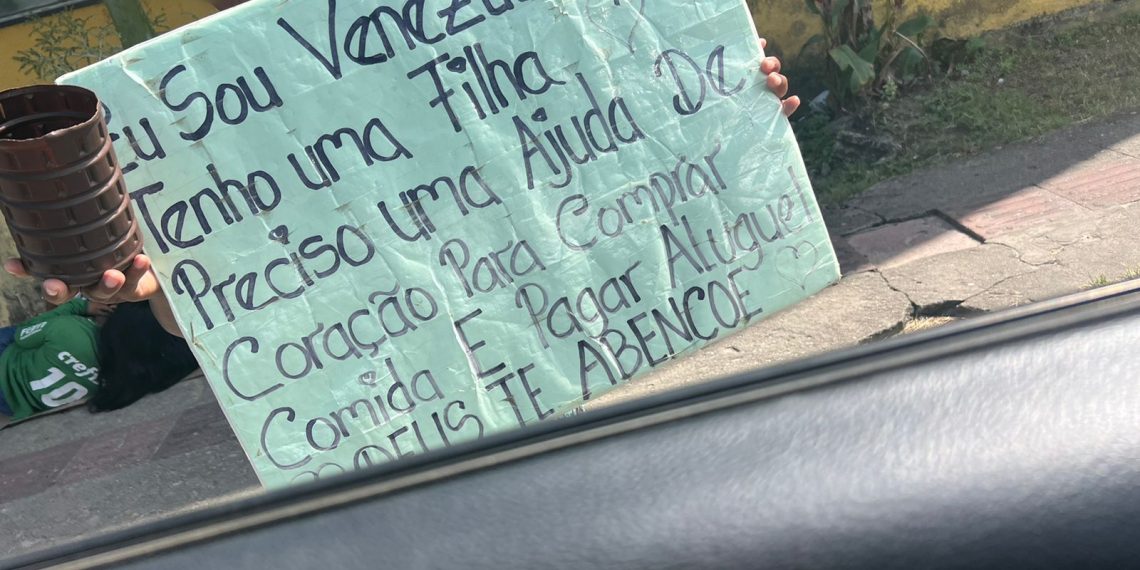 Eu Sou
Tenho uma Filha
Preciso uma Ajuda De
Coração Para Comprar
Comida E Pagar Aluguel
DEUS TE ABENCOE
crefi
10